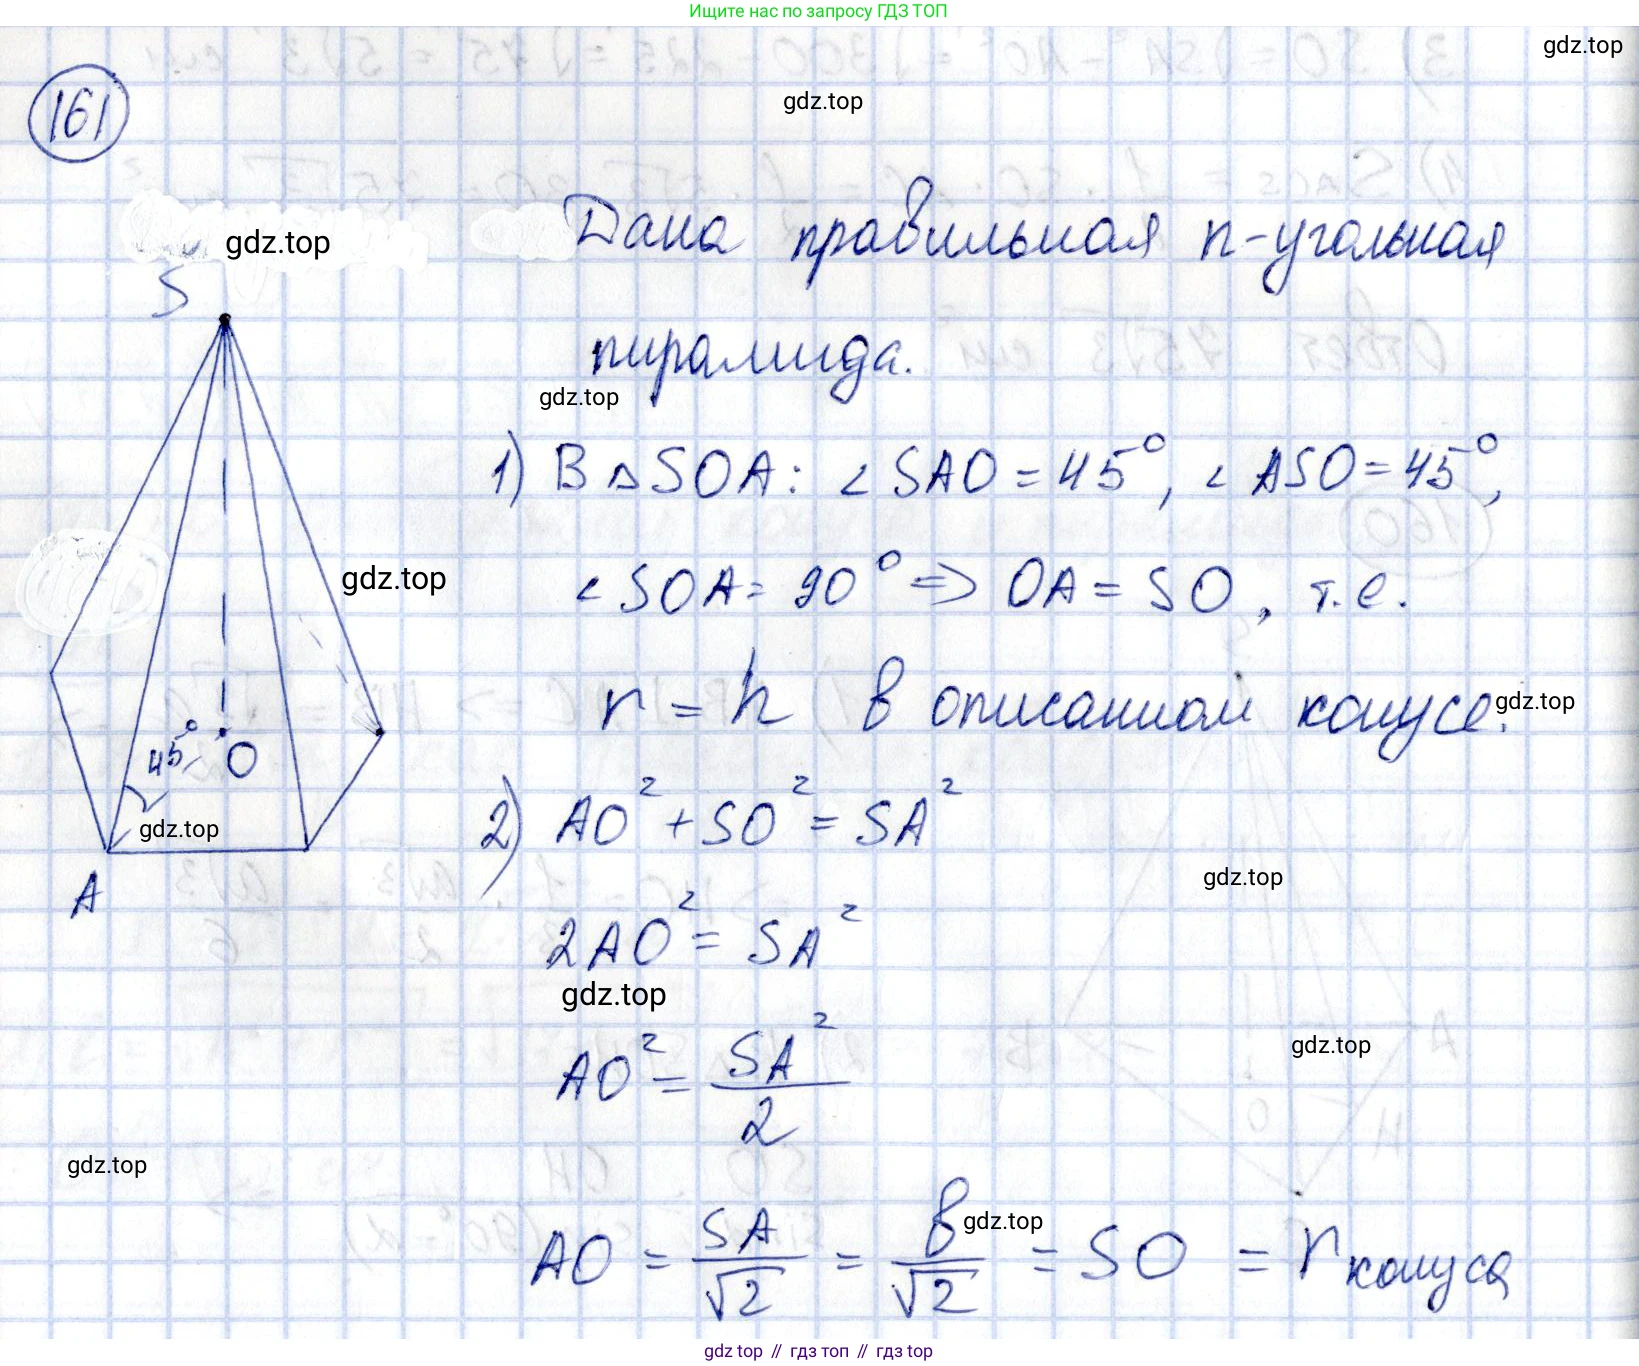 Ищите нас по запросу ГДЗ ТОП
gdz.top
161
gdz.top
gdz.top
Дана правильная n-угольная
S
пирамида.
gdz.top
1) В △SOA: ∠ SAO = 45°, ∠ ASO = 45°,
gdz.top
∠ SOA = 90° => OA = SO, т.е.
r = h в описанном конусе.
gdz.top
45° O
2) AO² + SO² = SA²
gdz.top
A
gdz.top
2AO² = SA²
gdz.top
AO² = SA² / 2
gdz.top
gdz.top
AO = SA / √2 = в / √2 = SO = r конуса
gdz.top
gdz top // гдз топ // gdz top